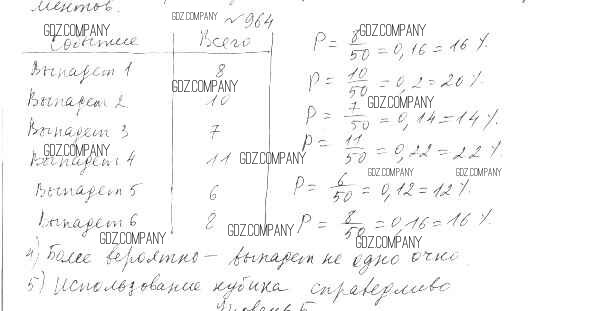 ментов.
№ 964
GDZ.COMPANY
GDZ.COMPANY
GDZ.COMPANY
Событие Всего
P = 8/50 = 0,16 = 16 %.
Выпадет 1 8
P = 10/50 = 0,2 = 20 %.
GDZ.COMPANY
Выпадет 2 10
GDZ.COMPANY
P = 7/50 = 0,14 = 14 %.
Выпадет 3 7
P = 11/50 = 0,22 = 22 %.
GDZ.COMPANY
Выпадет 4 11
GDZ.COMPANY
GDZ.COMPANY
GDZ.COMPANY
Выпадет 5 6
P = 6/50 = 0,12 = 12 %.
Выпадет 6 8
P = 8/50 = 0,16 = 16 %.
GDZ.COMPANY
GDZ.COMPANY
GDZ.COMPANY
4) Более вероятно – выпадет не одно очко.
5) Использование кубика справедливо